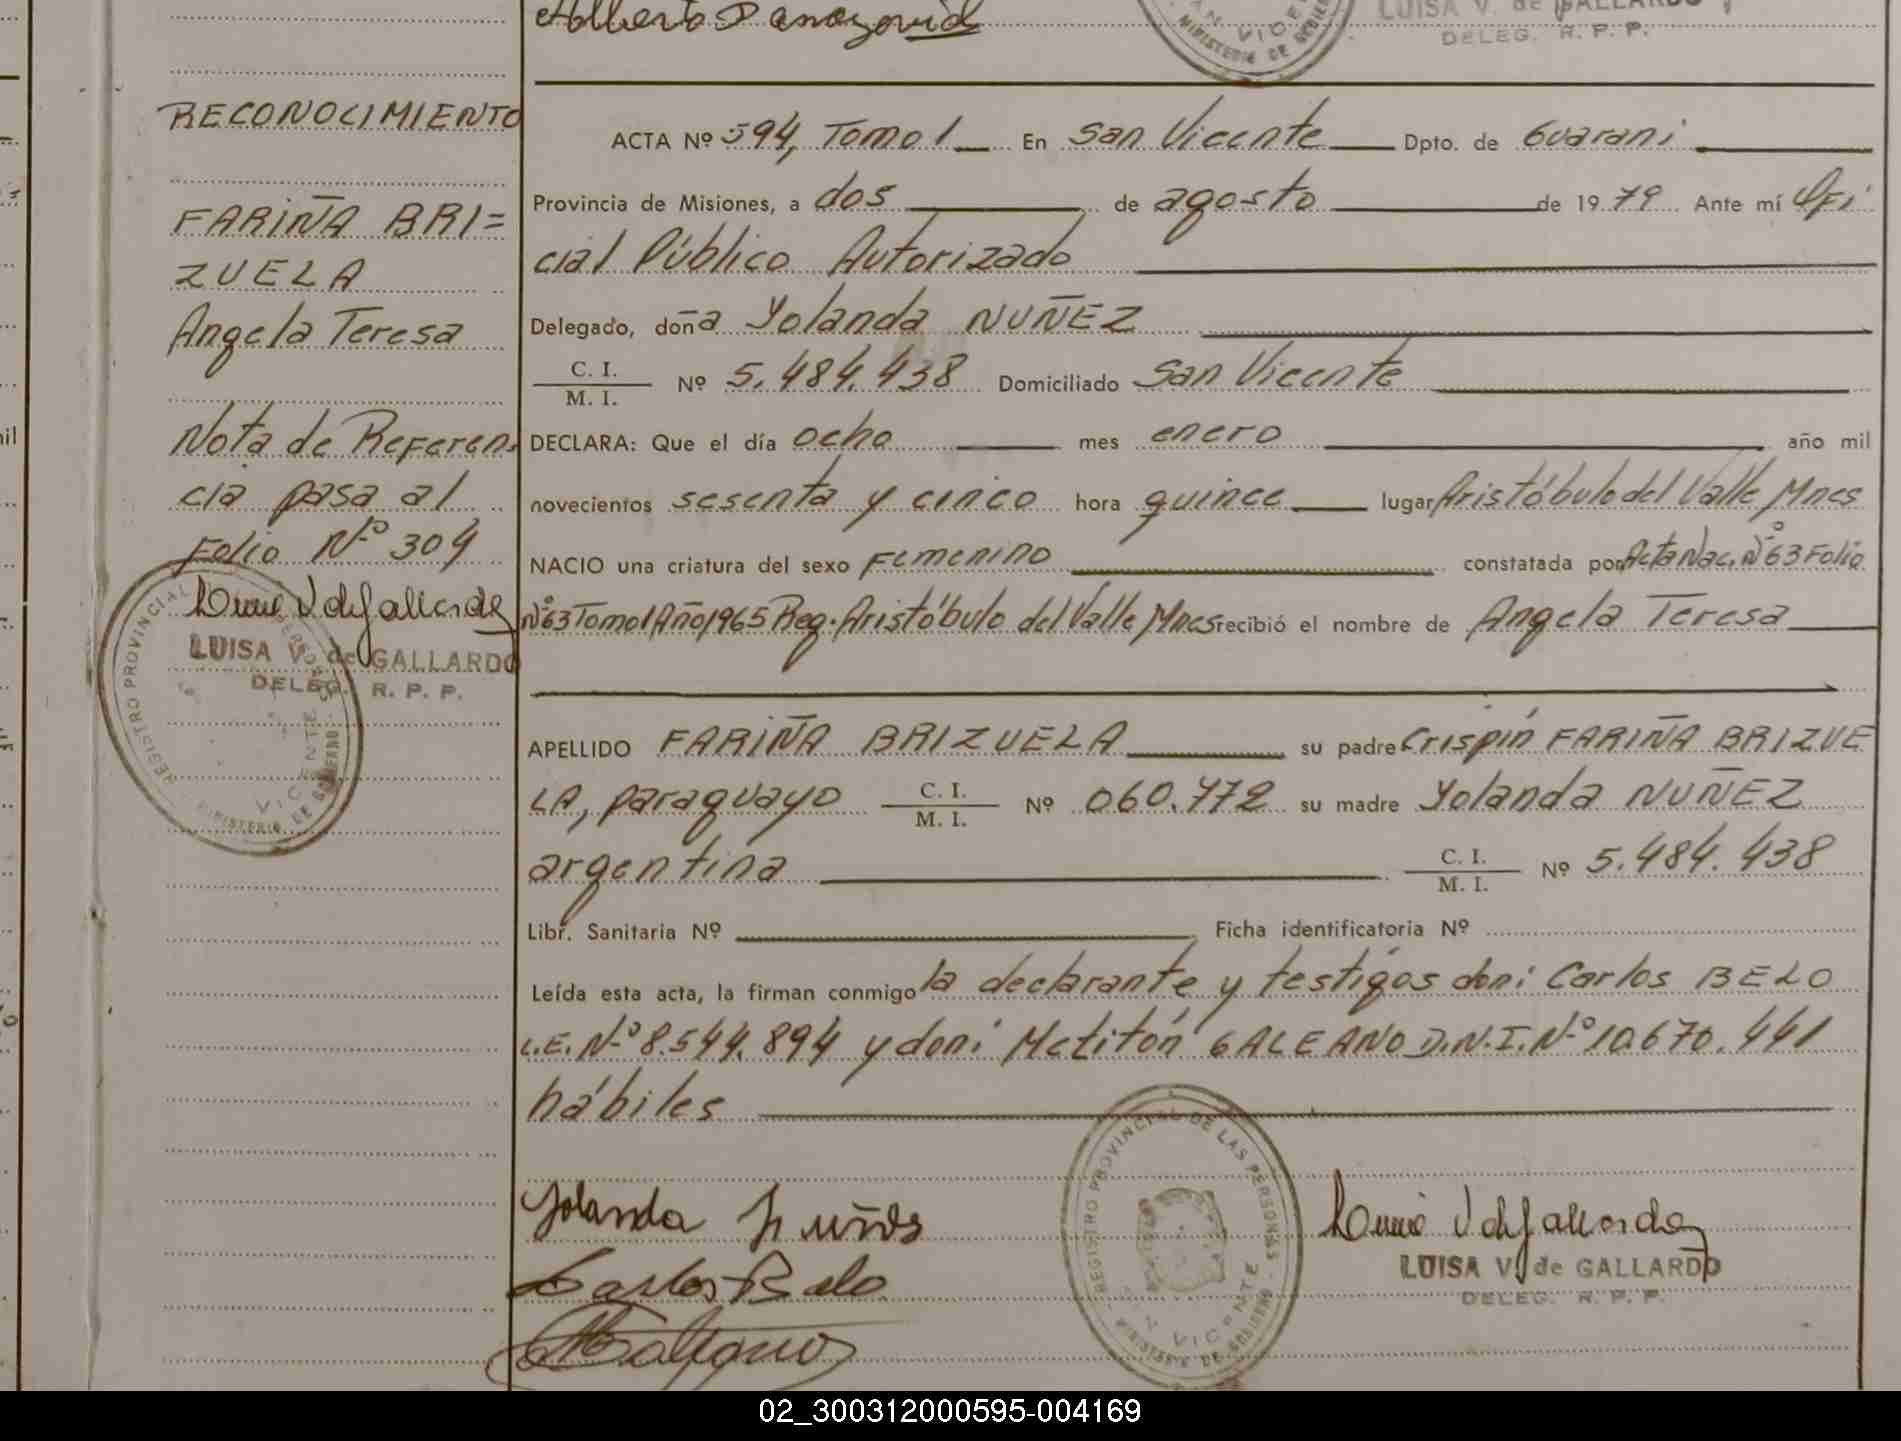 Alberto
LUISA V. de GALLARDO
DELEG. R. P. P.
MINISTERIO DE GOBIERNO
RECONOCIMIENTO
FARIÑA BRI=
ZUELA
Angela Teresa
Nota de Referen
cia pasa al
Folio Nº 304
LUISA V. de GALLARDO
DELEG. R. P. P.
REGISTRO PROVINCIAL
VICENTE
MINISTERIO DE GOBIERNO
ACTA Nº 594, Tomo 1 En San Vicente Dpto. de Guarani
Provincia de Misiones, a dos de agosto de 1979 Ante mí Ofi
cial Público Autorizado
Delegado, doña Yolanda NUÑEZ
C. I.
M. I. Nº 5.484.438 Domiciliado San Vicente
DECLARA: Que el día ocho mes enero año mil
novecientos sesenta y cinco hora quince lugar Aristóbulo del Valle Mnes
NACIO una criatura del sexo Femenino constatada por Acta Nac. Nº 63 Folio
Nº 63 Tomo 1 Año 1965 Reg. Aristóbulo del Valle Mnes recibió el nombre de Angela Teresa
APELLIDO FARIÑA BRIZUELA su padre Crispín FARIÑA BRIZUE
LA, paraguayo C. I. M. I. Nº 060.772 su madre Yolanda NUÑEZ
argentina C. I. M. I. Nº 5.484.438
Libr. Sanitaria Nº Ficha identificatoria Nº
Leída esta acta, la firman conmigo la declarante y testigos don: Carlos BELO
L.E. Nº 8.544.894 y don: Metitón GALEANO D.N.I. Nº 10.670.441
hábiles
Yolanda Nuñes
Carlos Belo
REGISTRO PROVINCIAL DE LAS PERSONAS
VICENTE
MINISTERIO DE GOBIERNO
LUISA V. de GALLARDO
DELEG. R. P. P.
02_300312000595-004169